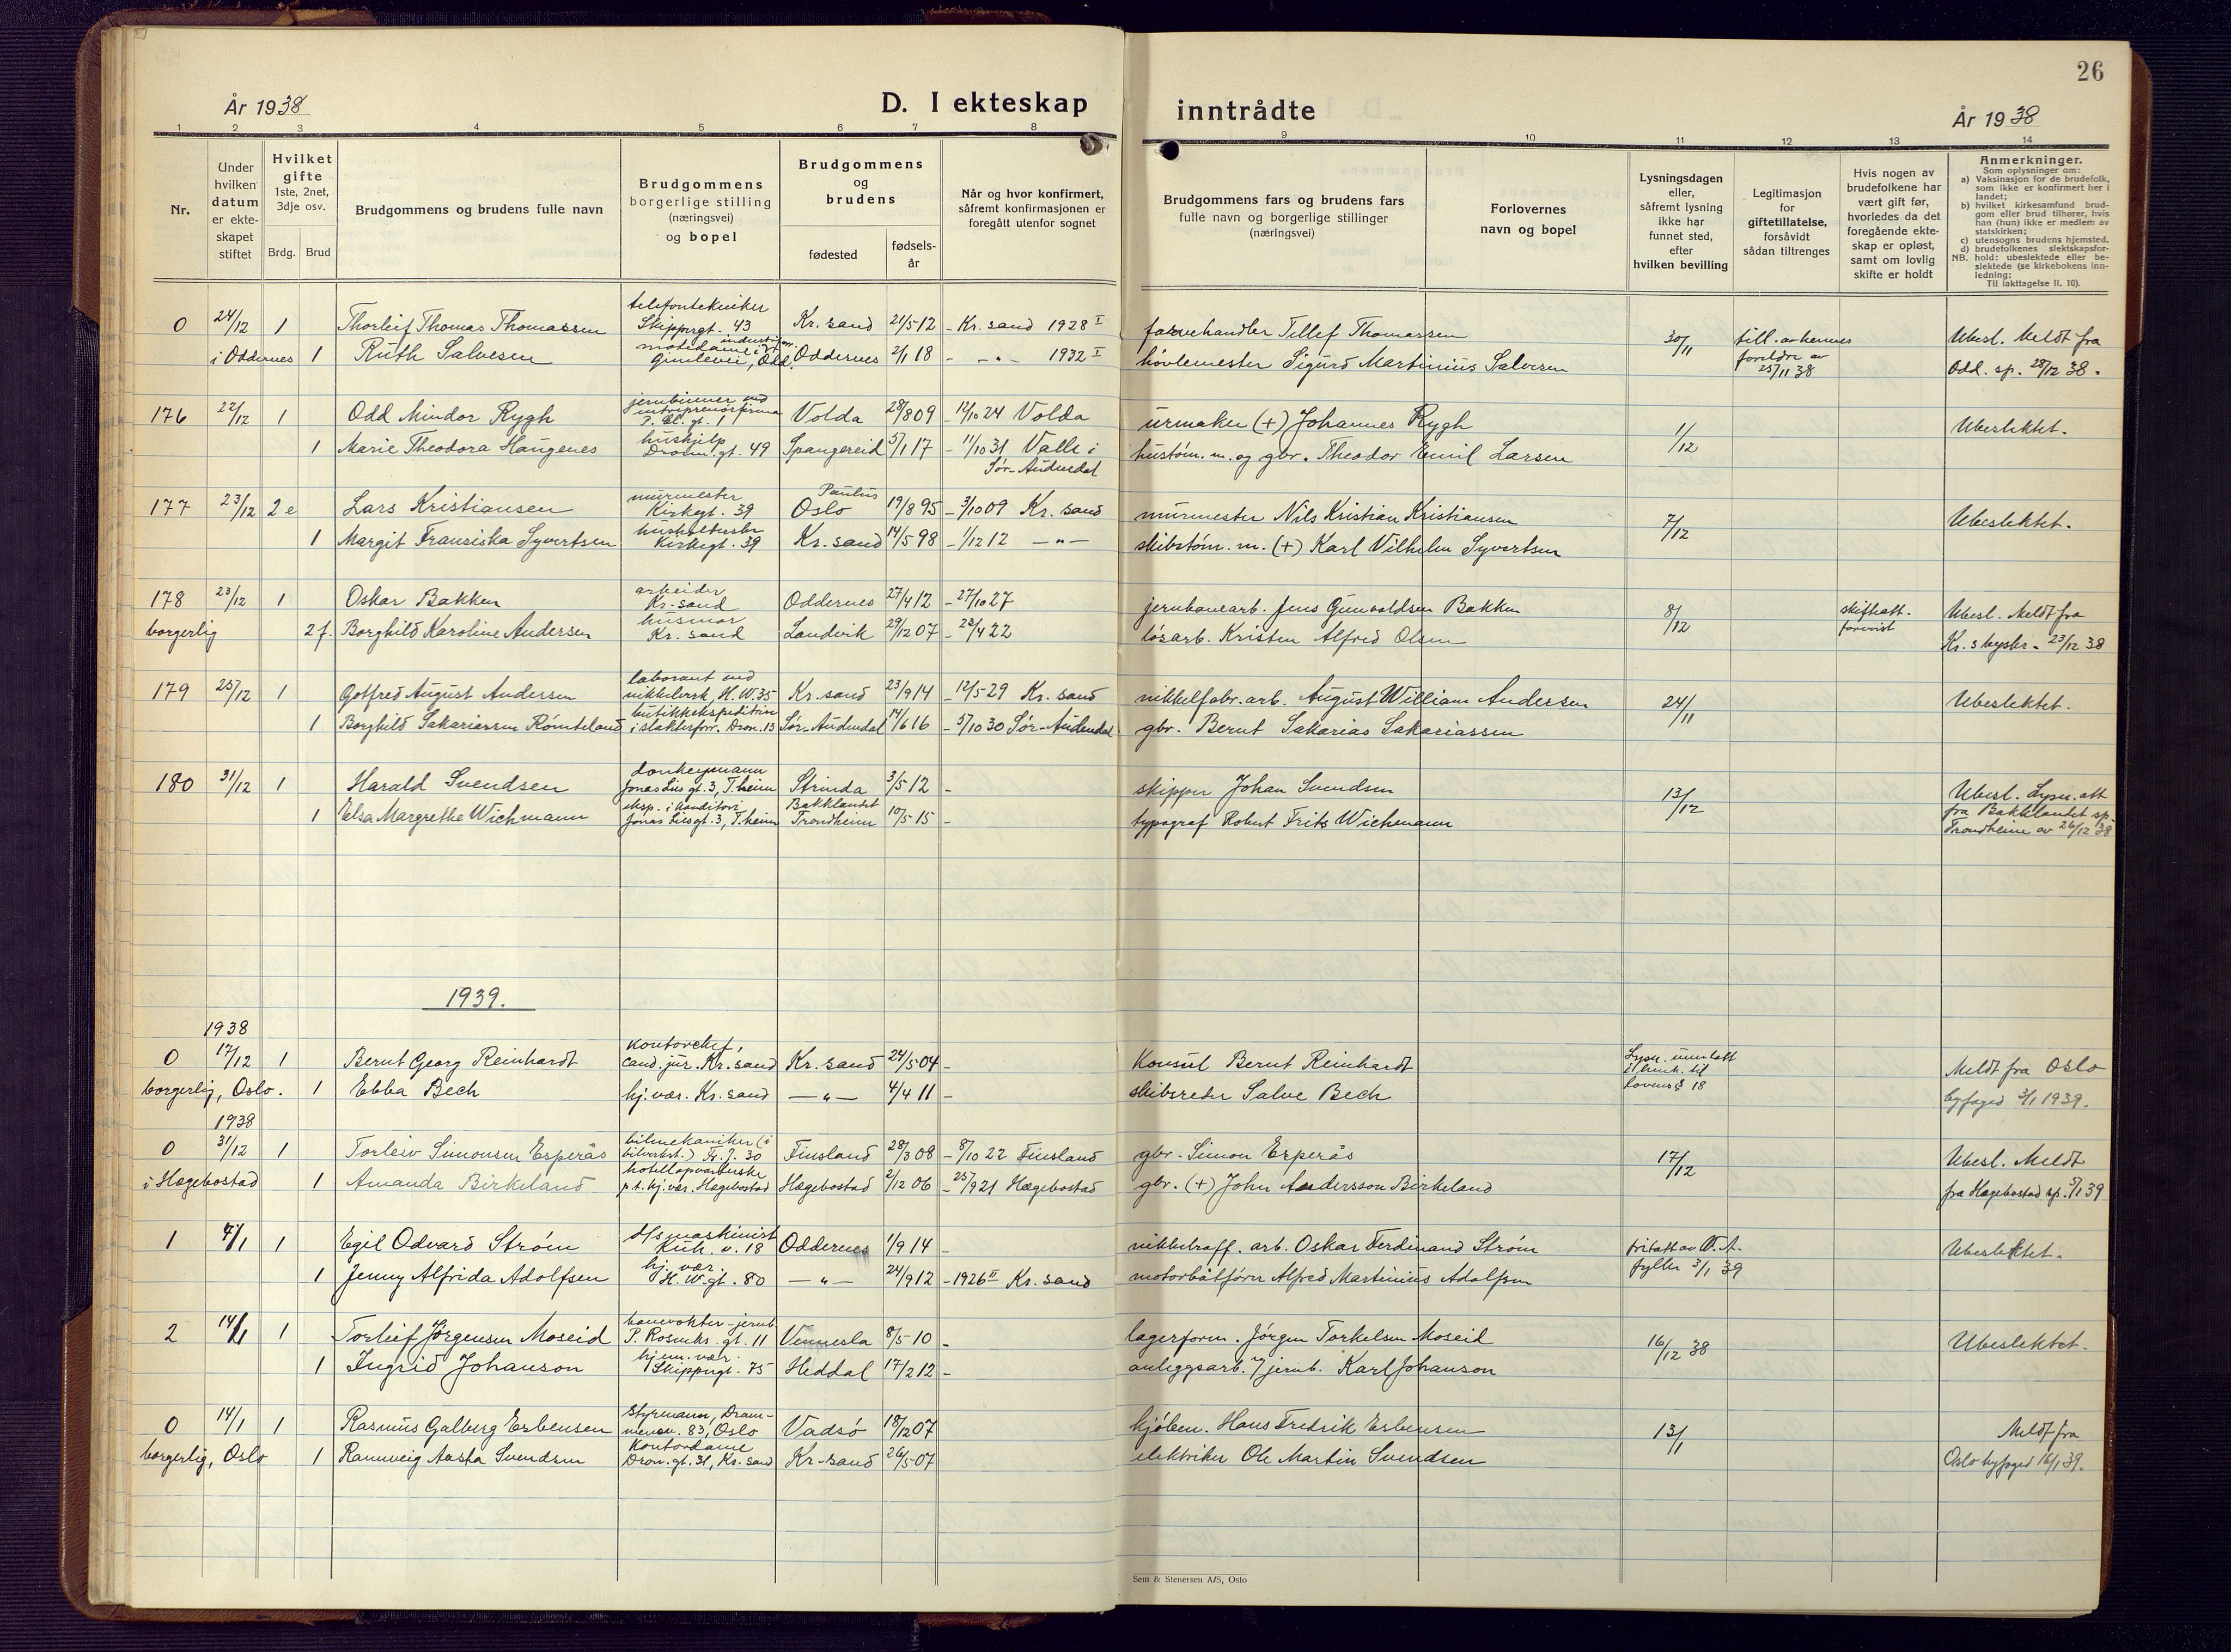 26
År 1938
D. I ekteskap
inntrådte
År 1938
1 2 3 4 5 6 7 8 9 10 11 12 13 14
Nr.
Under hvilken datum er ekteskapet stiftet
Hvilket gifte 1ste, 2net, 3dje osv.
Brdg. Brud
Brudgommens og brudens fulle navn
Brudgommens borgerlige stilling (næringsvei) og bopel
Brudgommens og brudens
fødested
fødselsår
Når og hvor konfirmert, såfremt konfirmasjonen er foregått utenfor sognet
Brudgommens fars og brudens fars fulle navn og borgerlige stillinger (næringsvei)
Forlovernes navn og bopel
Lysningsdagen eller, såfremt lysning ikke har funnet sted, efter hvilken bevilling
Legitimasjon for giftetillatelse, forsåvidt sådan tiltrenges
Hvis nogen av brudefolkene har vært gift før, hvorledes da det foregående ekteskap er opløst, samt om lovlig skifte er holdt
Anmerkninger.
Som oplysninger om:
a) Vaksinasjon for de brudefolk, som ikke er konfirmert her i landet;
b) hvilket kirkesamfund brudgom eller brud tilhører, hvis han (hun) ikke er medlem av statskirken;
c) utensogns brudens hjemsted.
d) brudefolkenes slektskapsforhold: ubeslektede eller beslektede (se kirkebokens innledning;
NB.
Til iakttagelse II. 10).
0 24/12 1 Thorleif Thomas Thomassen telefontekniker Skippergt. 43 Kr. sand 21/5 12 - Kr. sand 1928 I farvehandler Tellef Thomassen 30/11 till. av hennes foreldre av 25/11 38 Ubesl. Meldt fra
i Oddernes 1 Ruth Salvesen Gimlevei, Odd. Oddernes 2/1 18 - -"- 1932 I høvlemester Sigurd Martinius Salvesen Odd. sp. 28/12 38.
176 22/12 1 Odd Mindor Rygh Volda 28/8 09 - 12/10 24 Volda urmaker (+) Johannes Rygh 1/12 Ubeslektet.
1 Marie Theodora Haugenes hushjelp Dronn. gt. 49 Spangereid 5/1 17 - 11/10 31 Valle i Sør-Audnedal hustøm. m. og gbr. Theodor Emil Larsen
177 23/12 2 e Lars Kristiansen murmester Kirkegt. 39 Paulus Oslo 19/8 95 - 3/10 09 Kr. sand murmester Nils Kristian Kristiansen 7/12 Ubeslektet.
1 Margit Fransiska Syvertsen husholderske Kirkegt. 39 Kr. sand 14/5 98 - 1/12 12 -"- skibstøm. m. (+) Karl Vilhelm Syvertsen
178 23/12 1 Oskar Bakken arbeider Kr. sand Oddernes 27/4 12 - 27/10 27 jernbanearb. Jens Gunvaldsen Bakken 8/12 skifteatt. forevist Ubesl. Meldt fra
borgerlig 2 f. Borghild Karoline Andersen husmor Kr. sand Landvik 29/12 07 - 23/4 22 løsarb. Kristen Alfred Olsen Kr. s byskr. 23/12 38
179 25/12 1 Gotfred August Andersen laborant ved nikkelverk, H. W. 35 Kr. sand 23/9 14 - 12/5 29 Kr. sand nikkelfabr. arb. August William Andersen 24/11 Ubeslektet.
1 Borghild Sakariassen Rømteland butikkekspeditrise i slakterforr. Dron. 13 Sør-Audnedal 14/6 16 - 5/10 30 Sør-Audnedal gbr. Bernt Sakarias Sakariassen
180 31/12 1 Harald Svendsen donkeymann Jonas Lies gt. 3, T.heim Strinda 3/5 12 - skipper Johan Svendsen 13/12 Ubesl. Lysn. att
1 Elsa Margrethe Wichmann eksp. i konditori Jonas Liesgt. 3, T.heim Bakklandet Trondheim 10/5 15 - typograf Robert Frits Wichmann fra Bakklandet sp. Trondheim av 26/12 38
1939.
1938
0 17/12 1 Bernt Georg Reinhardt kontorchef, cand. jur. Kr. sand Kr. sand 24/5 04 - Konsul Bernt Reinhardt Lysn. unnlatt i henh. til lovens § 18 Meldt fra Oslo
borgerlig, Oslo. 1 Ebba Bech hj. vær. Kr. sand -"- 4/4 11 - skibsreder Salve Bech byfoged 3/1 1939.
1938
0 31/12 1 Torleiv Simonsen Esperås bilmekaniker (i bilverkst.) Fr. J. 30 Finsland 28/3 08 - 8/10 22 Finsland gbr. Simon Esperås 17/12 Ubesl. Meldt
i Hægebostad 1 Amanda Birkeland hotellopvarterske p.t. hj. vær. Hægebostad Hægebostad 2/12 06 - 25/9 21 Hægebostad gbr. (+) John Andersson Birkeland fra Hægebostad sp. 5/1 39
1 7/1 1 Egil Odvard Strøm d/s maskinist Kuh. v. 18 Oddernes 1/9 14 - nikkelraff. arb. Oskar Ferdinand Strøm fritatt av V. A. fyller 3/1 39 Ubeslektet.
1 Jenny Alfrida Adolfsen hj. vær. H. W. gt. 80 -"- 24/9 12 - 1926 II Kr. sand motorbåtfører Alfred Martinius Adolfsen
2 14/1 1 Torleif Jørgensen Moseid banevokter - jernb. P. Rosenkr. gt. 11 Vennesla 8/5 10 - lagerform. Jørgen Torkelsen Moseid 16/12 38 Ubeslektet.
1 Ingrid Johanson hjem. vær. Skippergt. 75 Heddal 17/2 12 - anleggsarb. v/ jernb. Karl Johanson
0 14/1 1 Rasmus Galberg Esbensen Styrmann, Drammensv. 83, Oslo Vadsø 18/12 07 kjøbm. Hans Fredrik Esbensen 13/1 Meldt fra
borgerlig, Oslo 1 Rannveig Aasta Svendsen Kontordame Dron. gt. 31, Kr. sand Kr. sand 26/5 07 elektriker Ole Martin Svendsen Oslo byfoged 16/1 39.
Sem & Stenersen A/S, Oslo